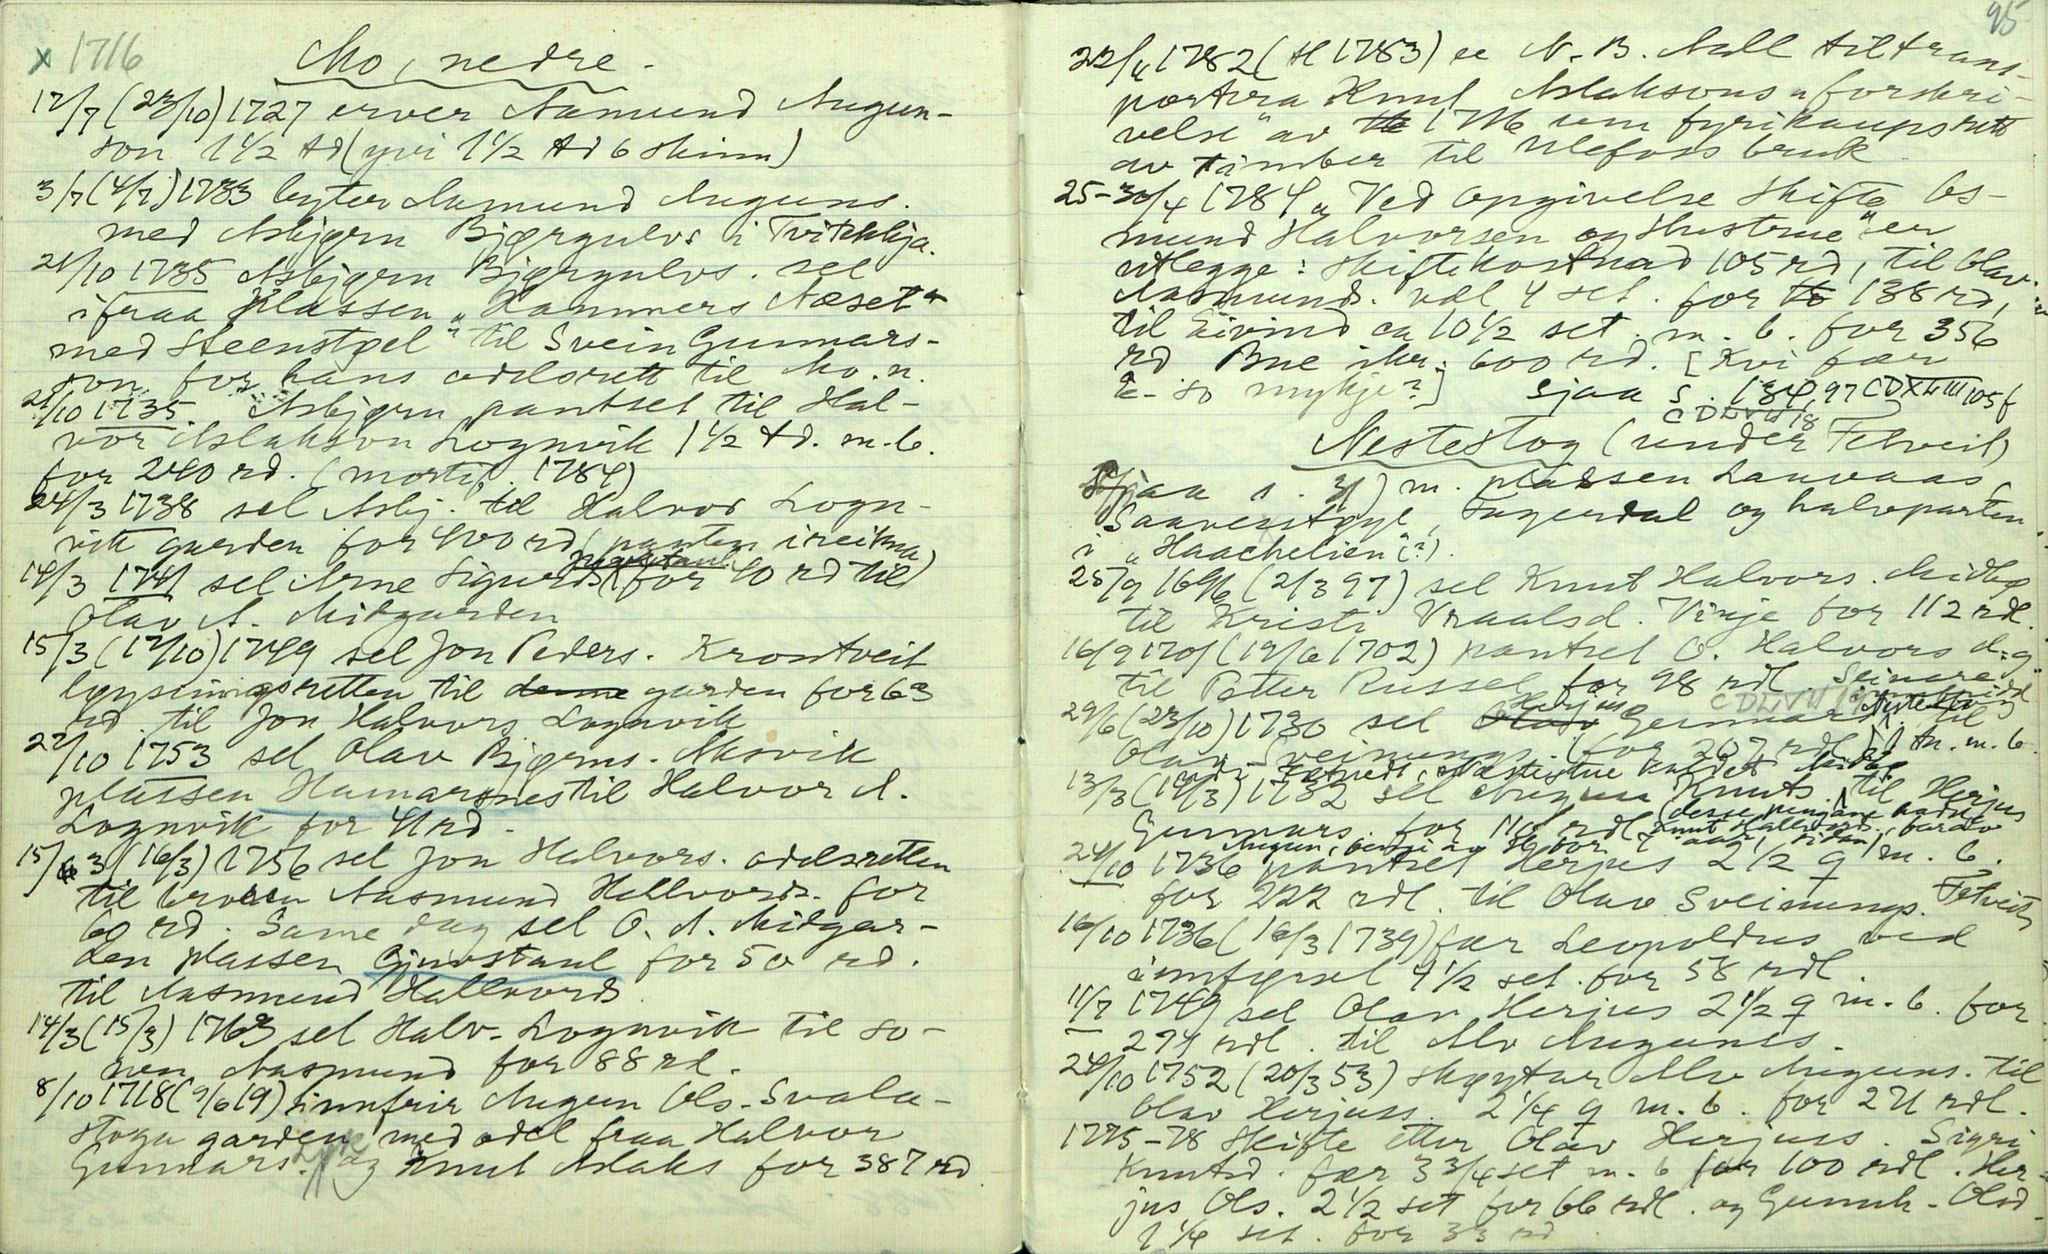 x 1716
Mo, nedre.
17/7 (23/10) 1727 erver Aamund Augun-
son 1 1/2 td (yvi 1 1/2 td 6 skinn)
3/7 (4/7) 1733 byter Aamund Auguns.
med Asbjørn Bjørgulvs i Tvitekkja.
21/10 1735 Asbjørn Bjørgulvs. sel
ifraa plassen "Hammers Næset
med Steenstøel" til Svein Gunnars-
son. for hans odelsrett til Mo. n.
21/10 1735 Asbjørn pantset til Hal-
vor Aslakson Lognvik 1 1/2 td. m. b.
for 240 rd. (mortif. 1784)
24/3 1738 sel Asbj. til Halvor Logn-
vik garden for 400 rd (panten ireikna)
14/3 1741 sel Arne Sigurds. for 40 rd til
Olav A. Midgarden
15/3 (17/10) 1749 sel Jon Peders. Krontveit
løysningsretten til denne garden for 63
rd. til Jon Halvors. Lognvik
22/10 1753 sel Olav Bjørns. Aasvik
plassen Hamarsnes til Halvor A.
Lognvik for 41 rd.
15/3 (16/3) 1756 sel Jon Halvors. odelsretten
til broren Aasmund Hallvords. for
60 rd. Same dag sel O. A. Midgar-
den plassen Gjuvstaul for 50 rd.
til Aasmund Hallvords
14/3 (15/3) 1763 sel Halv. Lognvik til so-
nen Aasmund for 88 rd.
8/10 1718 (9/6 19) innfrir Augun Ols. Svala-
stoga garden med odel fraa Halvor
Gunnars. og Knut Aslaks for 387 rd
95
22/4 1782 (tl 1783) N. B. Aall til trans-
portera Knut Aslaksons "forskri-
velse" av 1776 um fyrikaupsrett
av timber til Ulefoss bruk.
25-30/4 1784 "Ved Opgivelse Skifte Os-
mund Halvorsen og Hustrue" er
utlegge: Skiftekostnad 105 rd, til Olav
Aasmunds. vel 4 set. for 138 rd,
til Eivind ca 10 1/2 set. m. b. for 356
rd Bue iher. 600 rd. [Kvi fær
so mykje?] Sjaa s. 134, 97 CDXLIII 105 f
CDLVII 18
Nestestog (under Felveit)
(Sjaa s. 31) m. plassen Lauvaas,
Saaverstøyl, Fagerdal og halvparten
i "Haachelien" (?).
25/9 1696 (2/3 97) sel Knut Halvors. Midbø
til Kristi Vraalsd. Vinje for 112 rdl.
16/9 1701 (19/6 1702) pantset O. Halvors d. g.
til Petter Russel for 98 rdl Seinere
CDLVII 19
29/6 (23/10) 1730 sel Herjus Gunnars. til
Olav Sveinungs. for 267 rdl m. b.
13/3 (14/3) 1732 sel Augun Knuts. til Herjus
Gunnars. for 110 rdl (desse pengane
24/10 1736 pantset Herjus 2 1/2 q m. b.
for 222 rdl. til Olav Sveinungs. Felveit
16/10 1736 (16/3 1739) fær Leopoldus ved
innførsel 4 1/2 set. for 58 rdl.
11/7 1749 sel Olav Herjus 2 1/2 q m. b. for
274 rdl. til Alv Auguns.
24/10 1752 (20/3 53) skøytar Alv Auguns. til
Olav Herjuss. 2 1/4 q m. b. for 271 rdl.
1775-78 Skifte etter Olav Herjuss. Sigri
Knutsd. fær 3 3/4 set m. b for 100 rdl. Her-
jus Ols. 2 1/2 set for 66 rdl. og Gunnh. Olsd.
1 1/4 set. for 33 rd